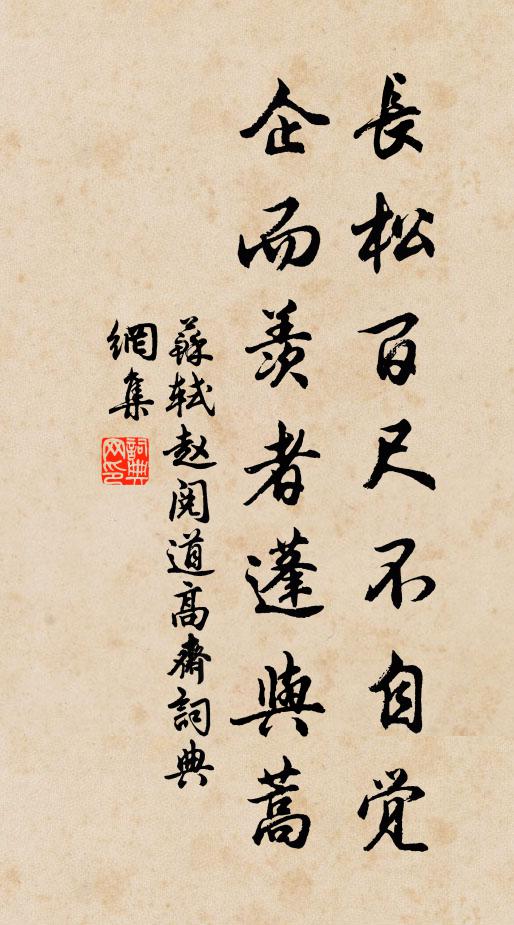 長松百尺不自觉
企而羨者蓬與蒿
蘇軾赵阅道高齋詞典
網集
詞典
网印